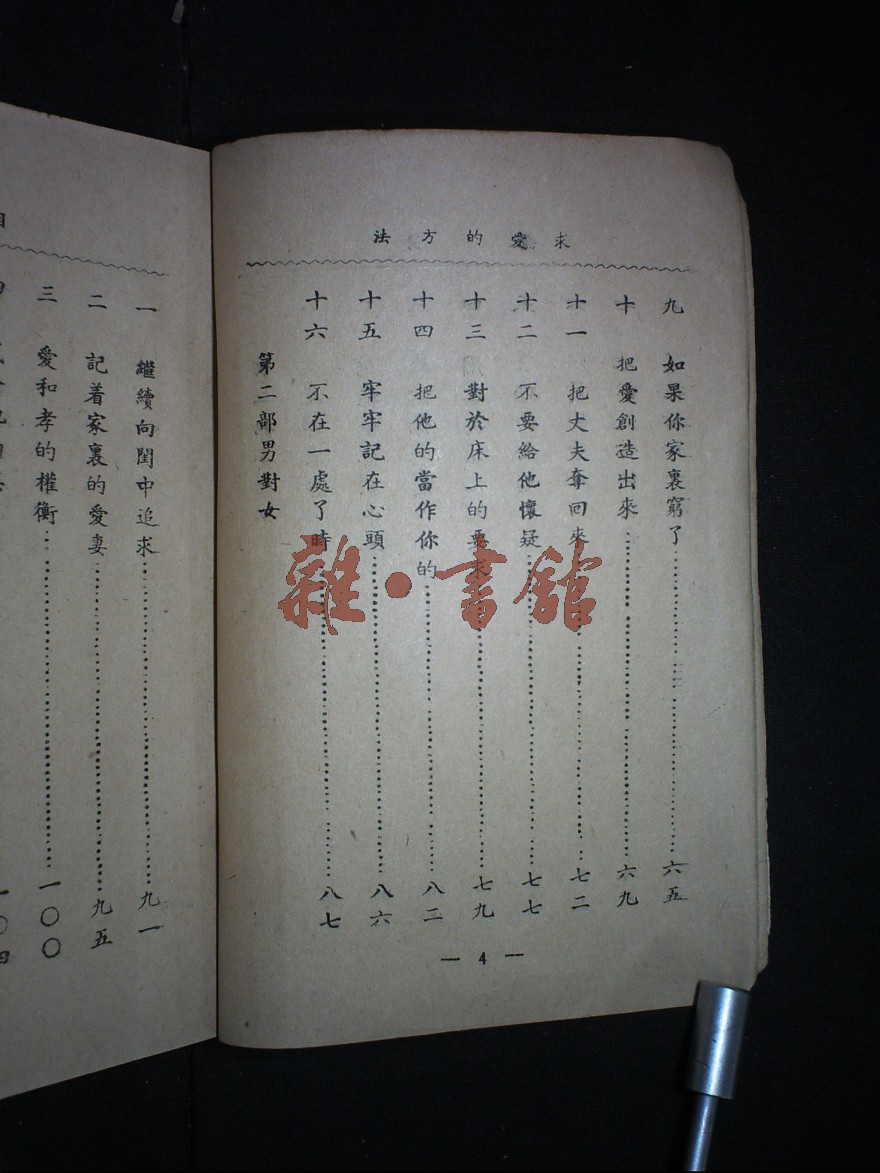 求愛的方法
九 如果你家裏窮了………六五
十 把愛創造出來………六九
十一 把丈夫奪回來………七二
十二 不要給他懷疑………七七
十三 對於床上的要求………七九
十四 把他的當作你的………八二
十五 牢牢記在心頭………八六
十六 不在一處了時………八七
第二部男對女
— 4 —
一 繼續向閨中追求………九一
二 記着家裏的愛妻………九五
三 愛和孝的權衡………一〇〇
一〇四
雜·書館